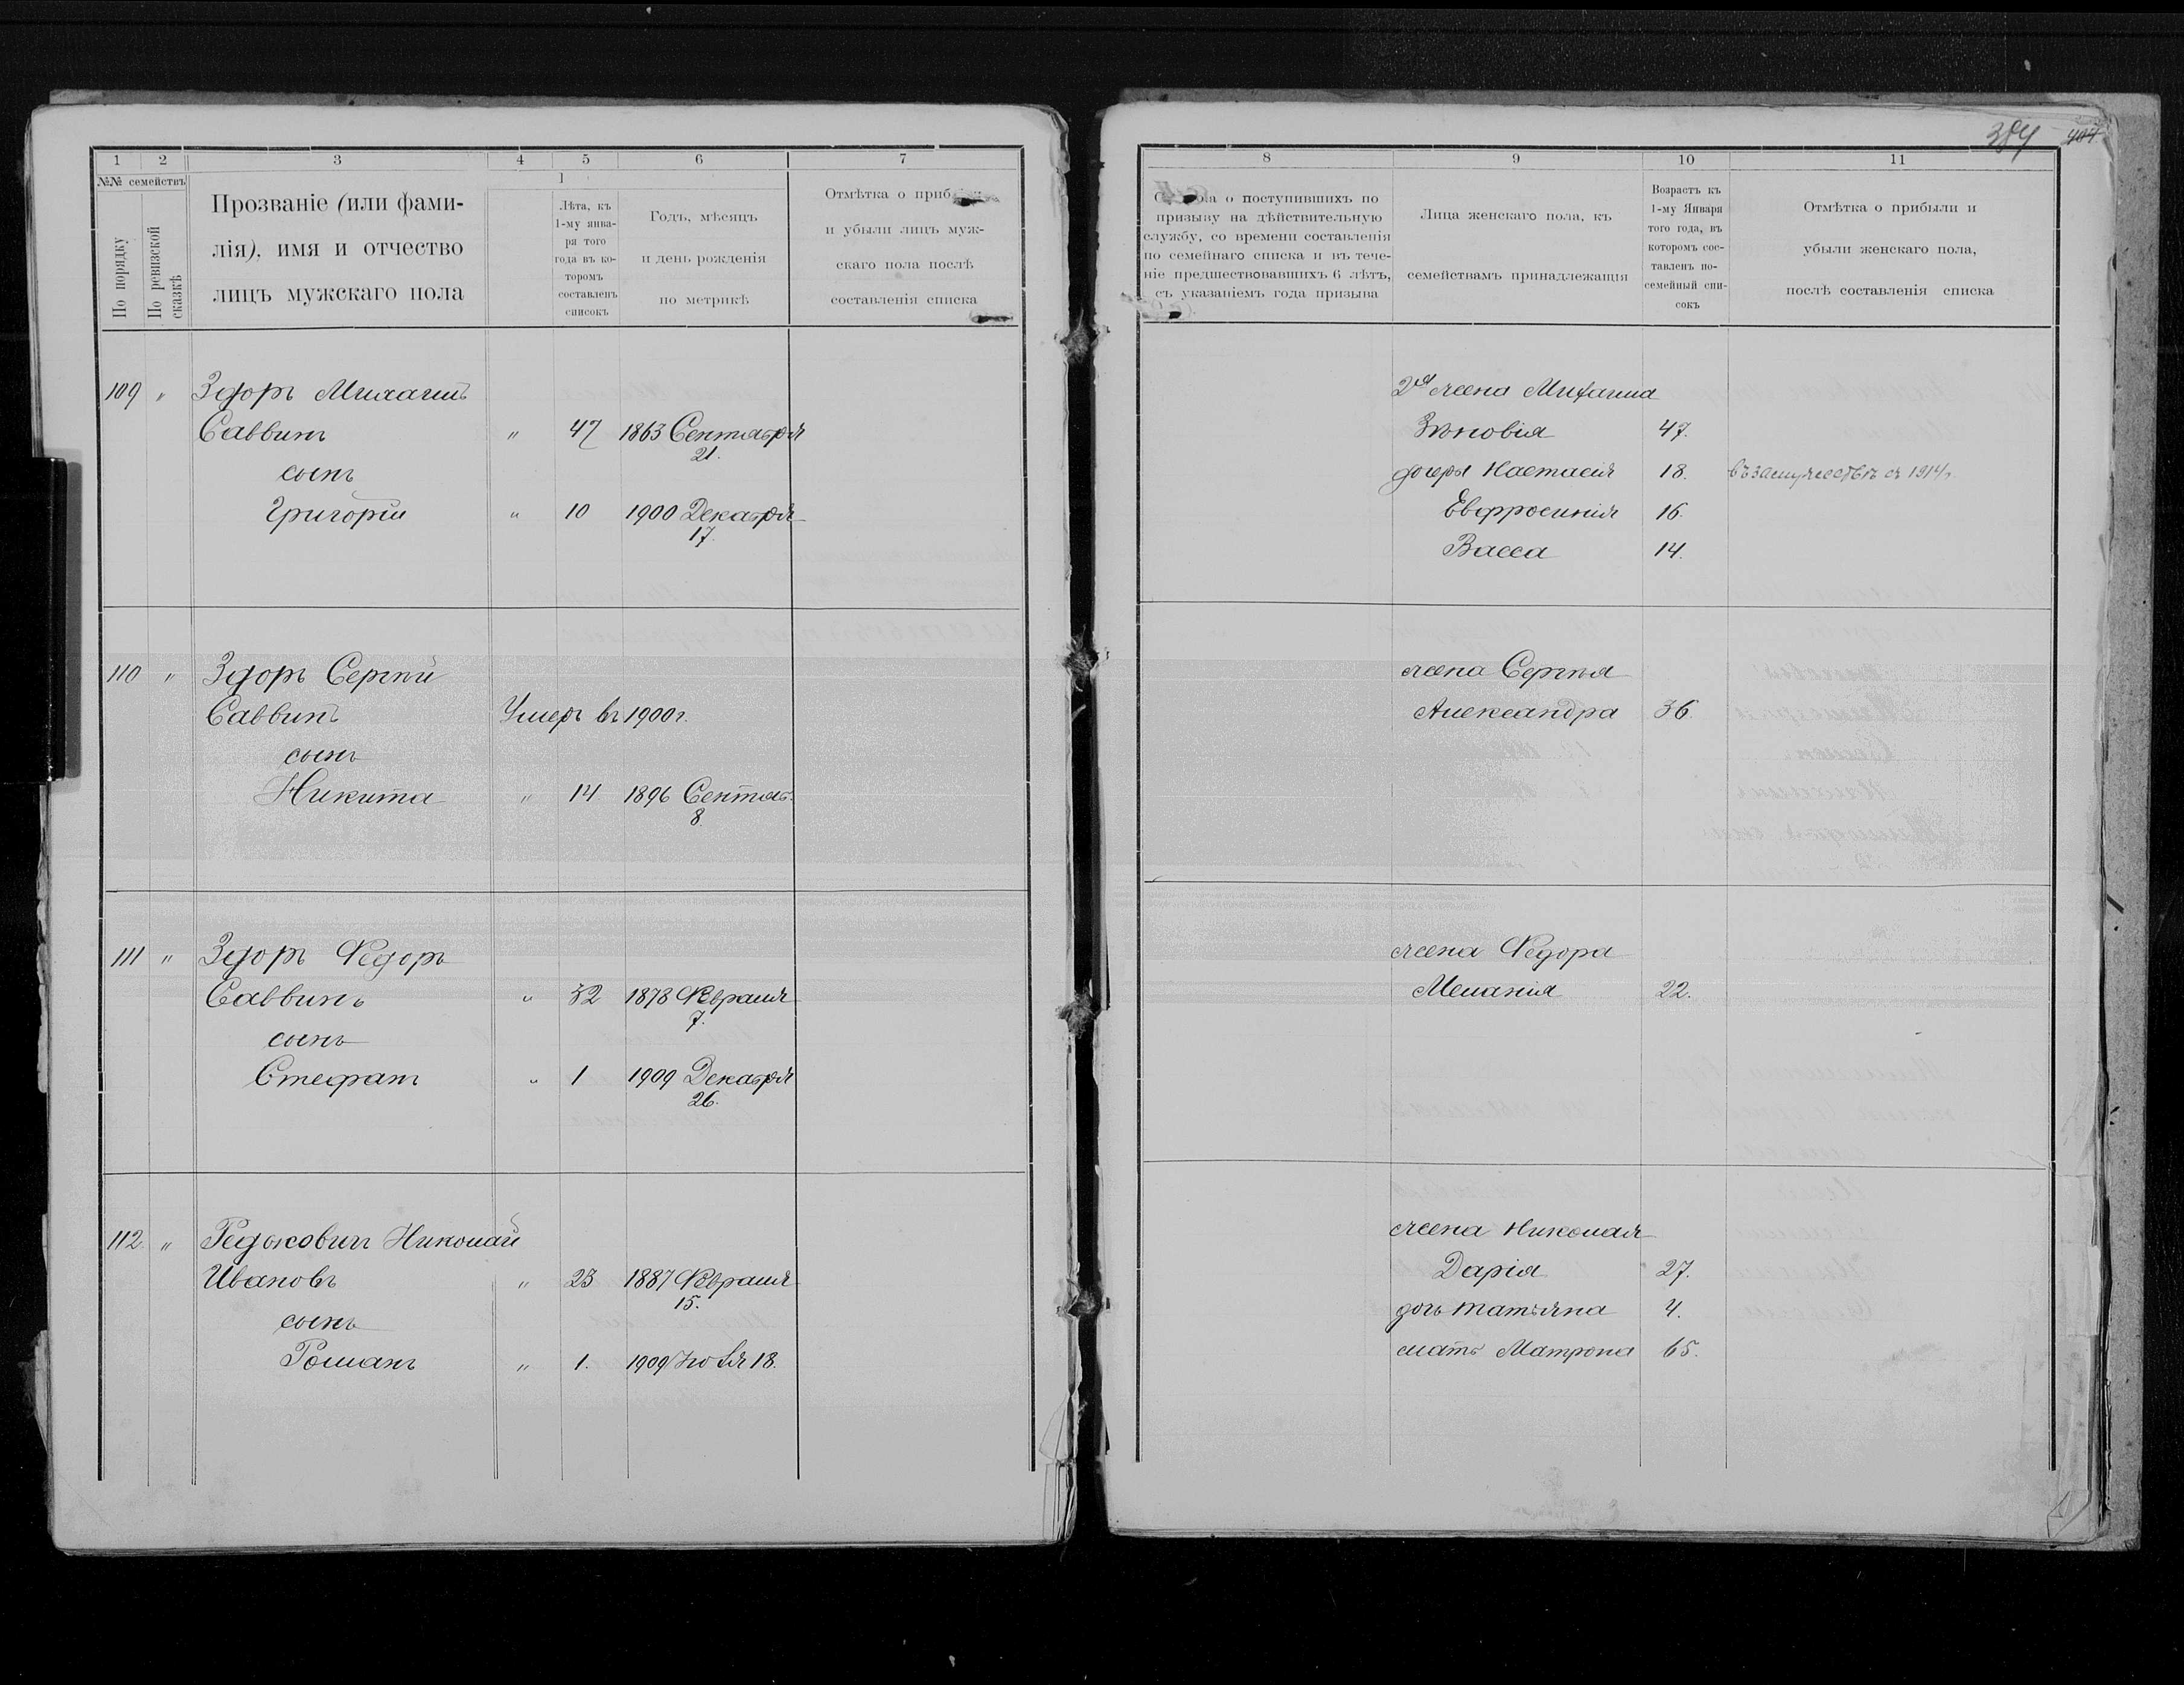 384 404
1 2 3 4 5 6 7
№№ семействъ
По порядку
По ревизской сказкѣ
Прозваніе (или фами-
лія), имя и отчество
лицъ мужскаго пола
1
Лѣта, къ
1-му янва-
ря того
года въ ко-
торомъ
составленъ
списокъ
Годъ, мѣсяцъ
и день рожденія
по метрикѣ
Отмѣтка о приб
и убыли лицъ муж-
скаго пола послѣ
составленія списка
109 " Здоръ Михаилъ
Саввинъ " 47 1863 Сентября
21.
сынъ
Григорій " 10 1900 Декабря
17.
110 " Здоръ Сергѣй
Саввинъ Умеръ въ 1900 г.
сынъ
Никита " 14 1896 Сентяб.
8.
111 " Здоръ Ѳедоръ
Саввинъ " 32 1878 Февраля
7.
сынъ
Стефанъ " 1 1909 Декабря
26.
112. " Редьковичъ Николай
Ивановъ " 23 1887 Февраля
15.
сынъ
Романъ " 1. 1909 18.
8 9 10 11
о поступившихъ по
призыву на дѣйствительную
службу, со времени составленія
по семейнаго списка и въ тече-
ніе предшествовавшихъ 6 лѣтъ,
съ указаніемъ года призыва
Лица женскаго пола, къ
семействамъ принадлежащія
Возрастъ къ
1-му Января
того года, въ
которомъ сос-
тавленъ по-
семейный спи-
сокъ
Отмѣтка о прибыли и
убыли женскаго пола,
послѣ составленія списка
2я жена Михаила
Зѣновія 47.
дочеры Настасія 18. въ замужествѣ съ 1914 г.
Евфросинія 16.
Васса 14.
жена Сергѣя
Александра 36.
жена Ѳедора
Меланія 22.
жена Николая
Дарія 27.
дочь Татьяна 4.
мать Матрона 65.